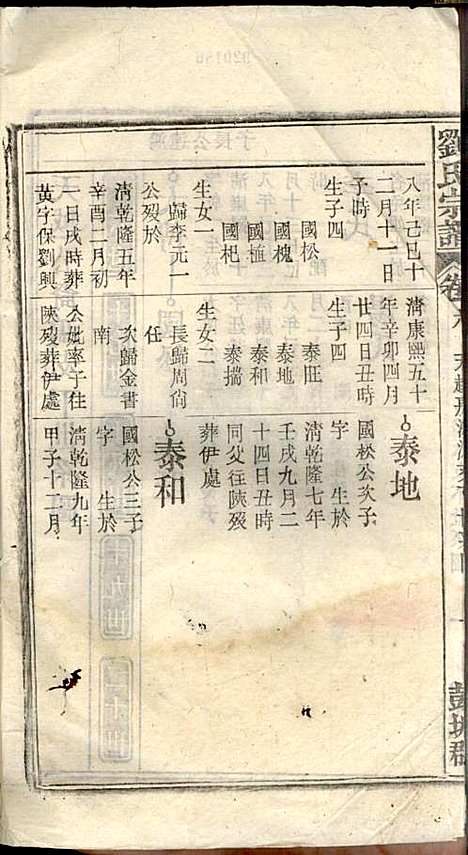 劉氏宗譜
卷
彭城郡
八年己巳十
二月十一日
子時
生子四
國松
國槐
國植
國杞
生女一
歸李元一
公歿於
清乾隆五年
辛酉二月初
一日戌時葬
黃字保劉興
清康熙五十
年辛卯四月
廿四日丑時
生子四
泰旺
泰地
泰和
泰擋
生女二
長歸周尙
任
次歸金書
南
公妣率子往
陝歿葬伊處
泰地
國松公次子
字 生於
清乾隆七年
壬戌九月二
十四日丑時
同父徃陝歿
葬伊處
泰和
國松公三子
字 生於
清乾隆九年
甲子十二月